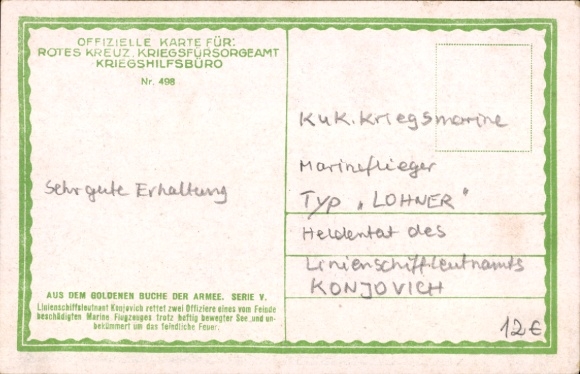 OFFIZIELLE KARTE FÜR:
ROTES KREUZ, KRIEGSFÜRSORGEAMT
KRIEGSHILFSBÜRO
Nr. 498
Sehr gute Erhaltung
AUS DEM GOLDENEN BUCHE DER ARMEE. SERIE V.
Linienschiffsleutnant Konjovich rettet zwei Offiziere eines vom Feinde
beschädigten Marine Flugzeuges trotz heftig bewegter See und un-
bekümmert um das feindliche Feuer.
KuK. Kriegsmarine
Marineflieger
Typ „LOHNER"
Heldentat des
Linienschiffleutnants
KONJOVICH
12€